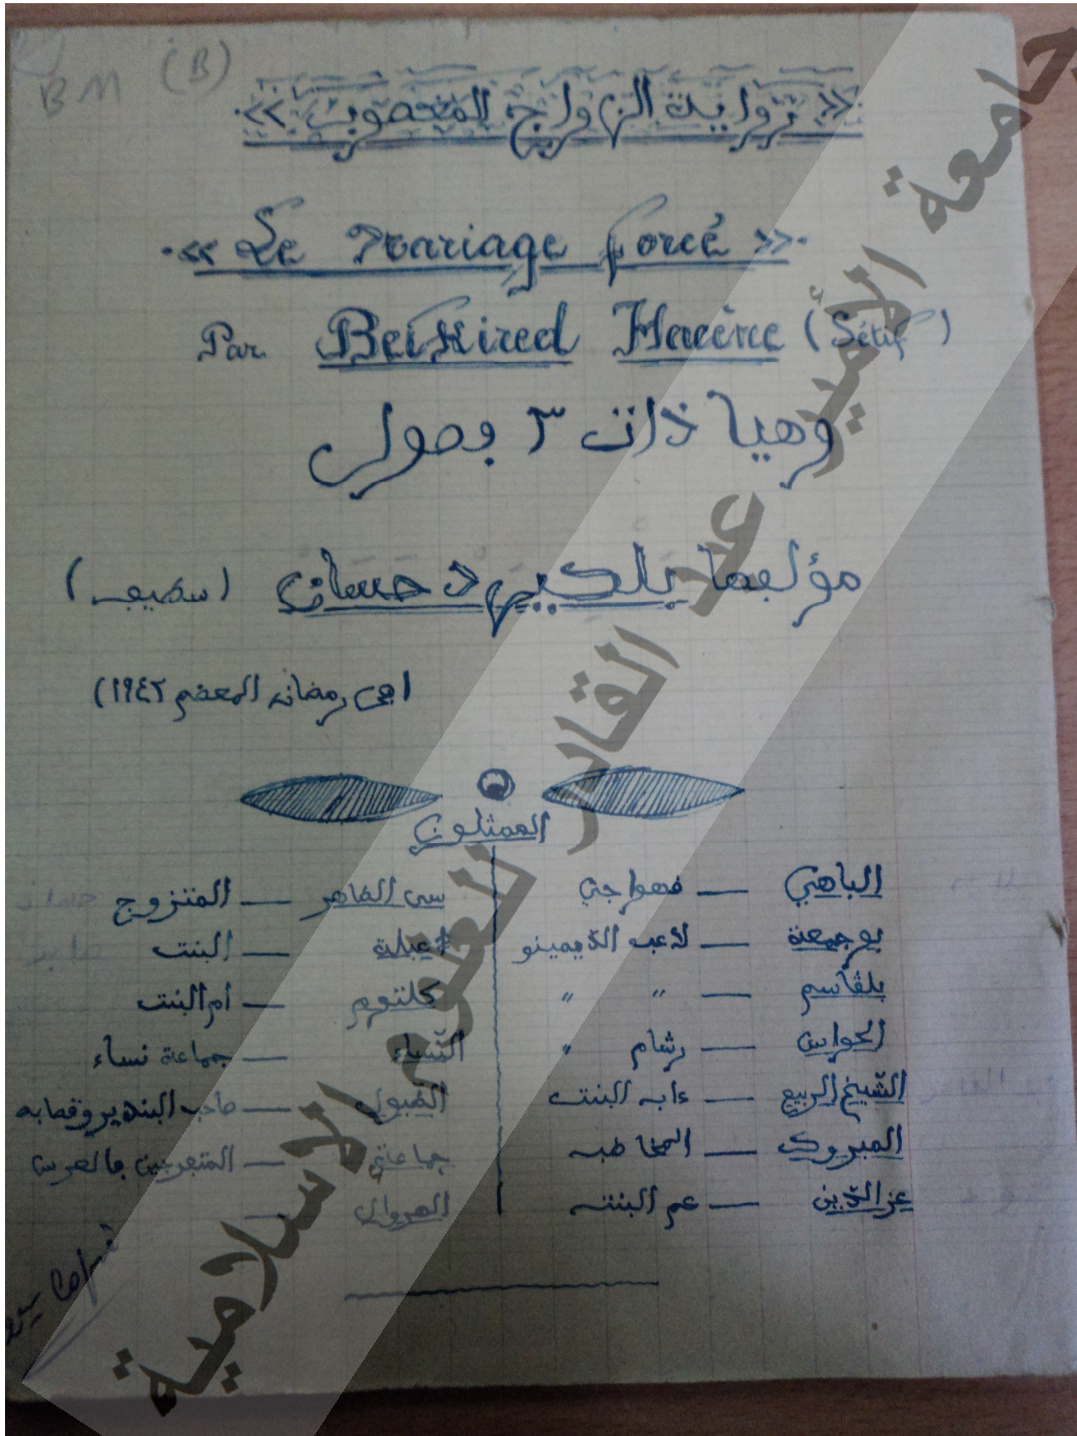 BM (B)
«رواية الزواج المغصوب»
« Le Mariage forcé »
Par Belkired Hacène (Sétif)
وهيا ذات ٣ بصول
مؤلبها بلكيرد حسان (سطيف)
رمضان المعضم ١٩٤٢)
الممثلون
الباهي — فهواجي
بوجمعة — لاعب الديمينو
بلڤاسم — " "
الحواس — رشام "
الشيخ الربيع — داب البنت
المبروك — الخاطب
عز الدين — عم البنت
سي الطاهر — المتزوج
عبلة — البنت
كلثوم — أم البنت
النساء — جماعة نساء
— صاحب البندير وڤصابه
جماعة — المتفرجين بالعرس
جامعة الأمير عبد القادر للعلوم الإسلامية